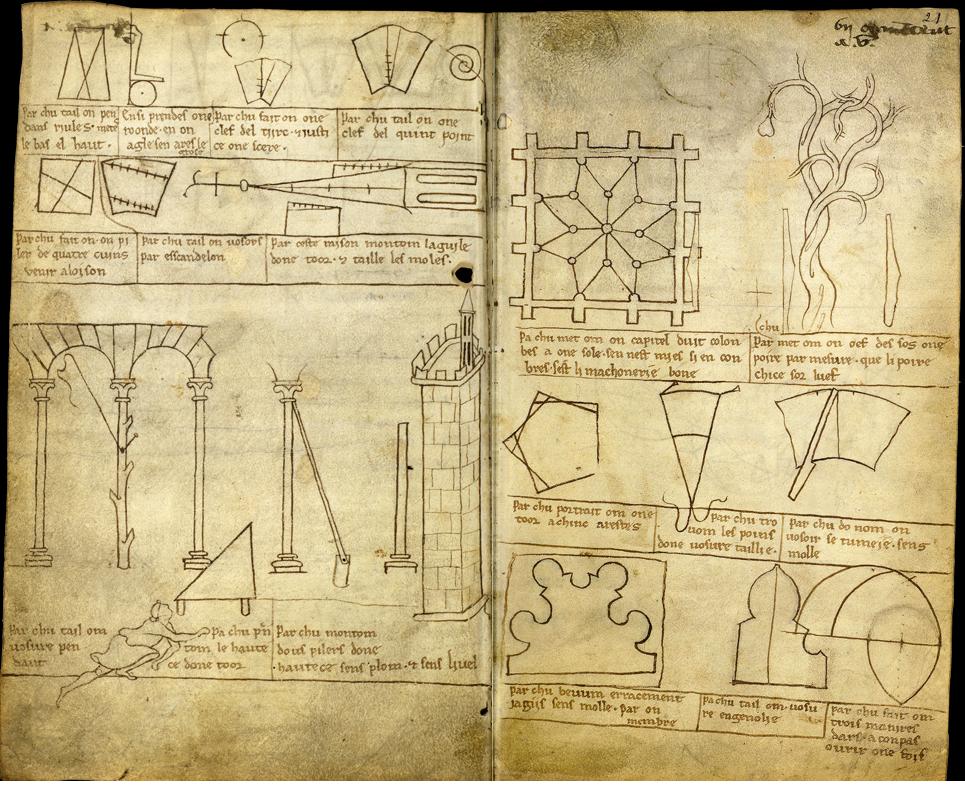 Par chu tail on pen
dans riules · mete
le bas el haut ·
Ensi prendes one
roonde · en on
agle sen ares le
grose
Par chu fait on one
clef del tirc · et justi
ce one scere ·
Par chu tail on one
clef del quint point
Par chu fait on · on pi
ler de quatre cuins
venir aloison
Par chu tail on vosors
par escandelon
Par ceste raison montom laguile
done toor · et taille les moles ·
Par chu tail om
vosure pen
dant
Pa chu prn
tom le haute
ce done toor
Par chu montom
dous pilers done
hautece sens plom · et sens livel
21
Pa chu met om on capitel duit colon
bes a one sole · seu nest mies si en con
bres · sest li machonerie bone
chu
Par met om on oef des sos one
poire par mesure · que li poire
chice sor luef
Par chu portrait om one
toor a chinc arestes
Par chu tro
vom les poins
done vosure taillie ·
Par chu do nom on
vosoir se tumeie · sens
molle
Par chu bevum erracement
jagiis sens molle · par on
membre
Pa chu tail om · vosu
re engenolie
Par chu fait om
trois manires
dars · a conpas
ovrir one fois